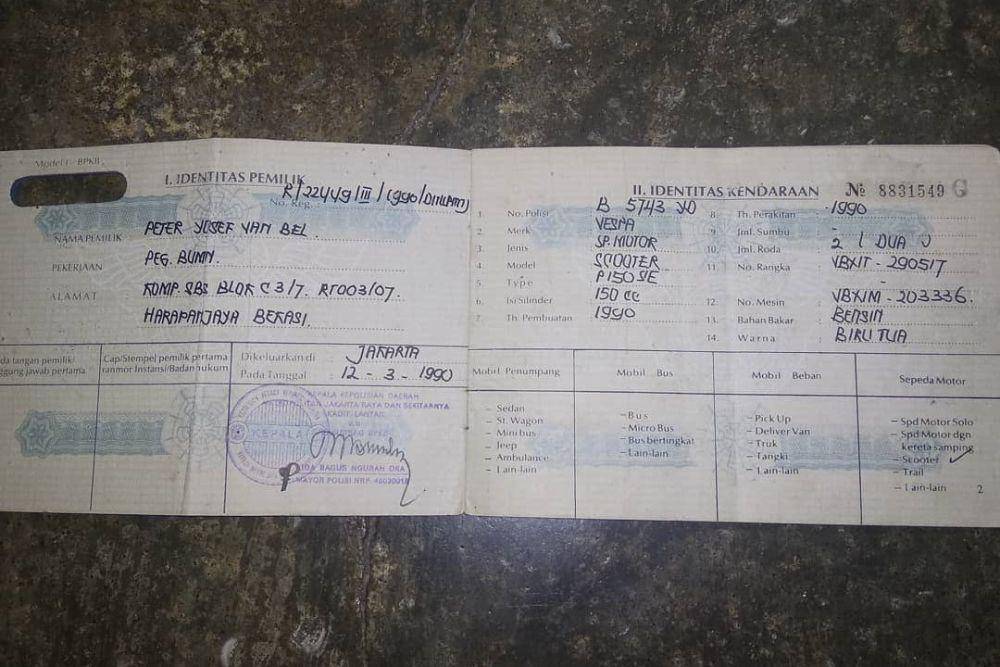 Model I - BPKB
I. IDENTITAS PEMILIK
No. Reg. : R/22449/III/1990/DITLANTAS
NAMA PEMILIK PETER YOSEF VAN BEL
PEKERJAAN PEG. BUMN.
ALAMAT KOMP. SBS BLOK C 3/7. RT003/07.
HARAPANJAYA BEKASI.
da tangan pemilik/
ggung jawab pertama.
Cap/Stempel pemilik pertama
ranmor Instansi/Badan hukum
Dikeluarkan di : JAKARTA
Pada Tanggal : 12 - 3 - 1990
KEPALA KEPOLISIAN DAERAH
JAKARTA RAYA DAN SEKITARNYA
KADIT LANTAS
KEPALA
IDA BAGUS NGURAH OKA
MAYOR POLISI NRP.
II. IDENTITAS KENDARAAN
№ 8831549 G
1. No. Polisi B 5743 YO
2. Merk VESPA
3. Jenis SP. MOTOR
4. Model SCOOTER
5. Type P150SE
6. Isi Silinder 150 cc
7. Th. Pembuatan : 1990
8. Th. Perakitan : 1990
9. Jml. Sumbu : -
10. Jml. Roda : 2 ( DUA )
11. No. Rangka : VBX1T - 290517
12. No. Mesin : VBX1M - 203336.
13. Bahan Bakar : BENSIN
14. Warna : BIRU TUA
Mobil Penumpang
– Sedan
– St. Wagon
– Mini bus
– Jeep
– Ambulance
– Lain-lain
Mobil Bus
– Bus
– Micro Bus
– Bus bertingkat
– Lain-lain
Mobil Beban
– Pick Up
– Deliver Van
– Truk
– Tangki
– Lain-lain
Sepeda Motor
– Spd Motor Solo
– Spd Motor dgn
kereta samping
– Scooter
– Trail
– Lain-lain
2